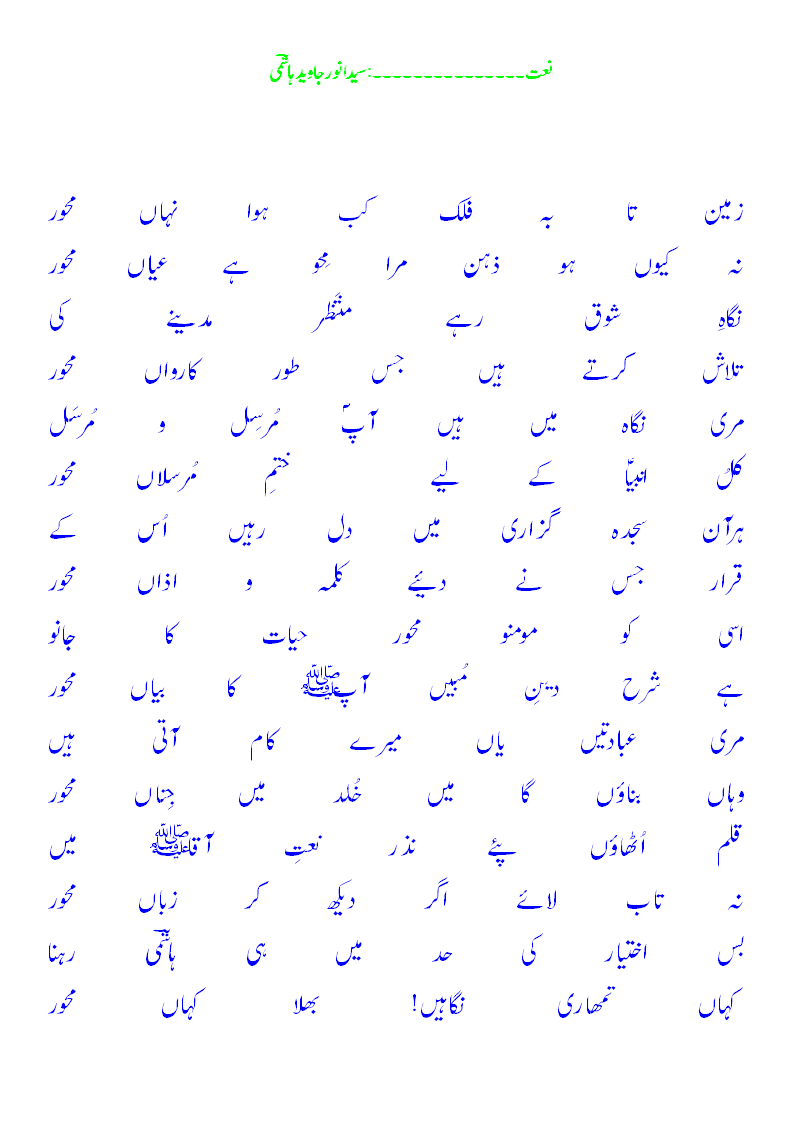 نعت۔۔۔۔۔۔۔۔۔۔۔۔۔۔۔:سیدانورجاویدہاشمی
زمین تا بہ فلک کب ہوا نہاں محور
نہ کیوں ہو ذہن مرا محِو ہے عیاں محور
نگاہِ شوق رہے منتَظر مدینے کی
تلاش کرتے ہیں جس طور کارواں محور
مری نگاہ میں ہیں آپؐ مُرسِل و مُرسَل
کلُ انبیاؑ کے لیے ختمِ مُرسلاں محور
ہرآن سجدہ گزاری میں دل رہیں اُس کے
قرار جس نے دیئے کلمہ و اذاں محور
اسی کو مومنو محور حیات کا جانو
ہے شرح دینِ مُبیں آپﷺ کا بیاں محور
مری عبادتیں یاں میرے کام آتی ہیں
وہاں بناؤں گا میں خُلد میں جِناں محور
قلم اُٹھاؤں پئے نذر نعتِ آقاﷺ میں
نہ تاب لائے اگر دیکھ کر زباں محور
بس اختیار کی حد میں ہی ہاشمی رہنا
کہاں تمھاری نگاہیں! بھلا کہاں محور